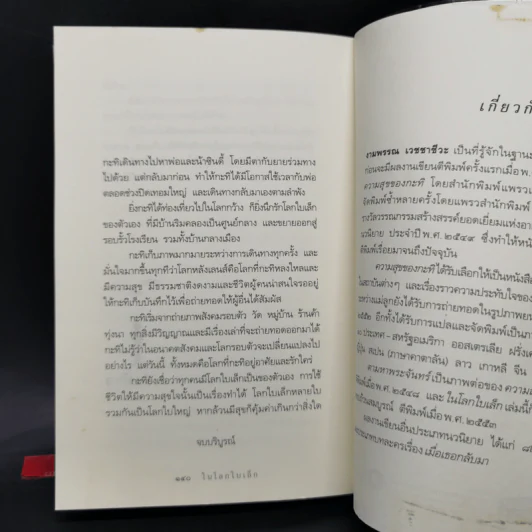 กะทิเดินทางไปหาพ่อและน้าซินดี้ โดยมีตากับยายร่วมทาง
ไปด้วย แต่กลับมาก่อน ทำให้กะทิได้มีโอกาสใช้เวลากับพ่อ
ตลอดช่วงปิดเทอมใหญ่ และเดินทางกลับมาเองตามลำพัง
ยิ่งกะทิได้ท่องเที่ยวไปในโลกกว้าง ก็ยิ่งนึกรักโลกใบเล็ก
ของตัวเอง ที่มีบ้านริมคลองเป็นศูนย์กลาง และขยายออกสู่
รอบรั้วโรงเรียน รวมทั้งบ้านกลางเมือง
กะทิเก็บภาพมากมายระหว่างการเดินทางทุกครั้ง และ
มั่นใจมากขึ้นทุกทีว่าโลกหลังเลนส์คือโลกที่กะทิหลงใหลและ
มีความสุข มีธรรมชาติงดงามและชีวิตผู้คนน่าสนใจรออยู่
ให้กะทิเก็บบันทึกไว้เพื่อถ่ายทอดให้ผู้อื่นได้สัมผัส
กะทิเริ่มจากถ่ายภาพสังคมรอบตัว วัด หมู่บ้าน ร้านค้า
ทุ่งนา ทุกสิ่งมีวิญญาณและมีเรื่องเล่าที่จะถ่ายทอดออกมาได้
กะทิไม่รู้ว่าในอนาคตสังคมและโลกรอบตัวจะเปลี่ยนแปลงไป
อย่างไร แต่วันนี้ ทั้งหมดคือโลกที่กะทิอยู่อาศัยและรักใคร่
กะทิยังเชื่อว่าทุกคนมีโลกใบเล็กเป็นของตัวเอง การใช้
ชีวิตให้มีความสุขใจนั้นเป็นเรื่องทำได้ โลกใบเล็กหลายใบ
รวมกันเป็นโลกใบใหญ่ หากล้วนมีสุขก็คุ้มค่าเกินกว่าสิ่งใด
จบบริบูรณ์
ในโลกใบเล็ก
เกี่ยวกั
งามพรรณ เวชชาชีวะ เป็นที่รู้จักในฐานะ
ก่อนจะมีผลงานเขียนตีพิมพ์ครั้งแรกเมื่อ พ.
ความสุขของกะทิ โดยสำนักพิมพ์แพรว
จัดพิมพ์ซ้ำหลายครั้งโดยแพรวสำนักพิมพ์
รางวัลวรรณกรรมสร้างสรรค์ยอดเยี่ยมแห่งอา
นวนิยาย ประจำปี พ.ศ. ๒๕๔๙ ซึ่งทำให้หนั
พิมพ์เรื่อยมาจนถึงปัจจุบัน
ความสุขของกะทิ ได้รับเลือกให้เป็นหนังสือ
ในสถาบันต่างๆ และเรื่องราวความประทับใจของ
ระหว่างแม่ลูกยังได้รับการถ่ายทอดในรูปภาพยน
๒๕๕๒ อีกทั้งได้รับการแปลและจัดพิมพ์เป็นภา
ประเทศ - สหรัฐอเมริกา ออสเตรเลีย ฝรั่งเศ
ญี่ปุ่น สเปน (ภาษาคาตาลัน) ลาว เกาหลี จีน
ตามหาพระจันทร์ เป็นภาพต่อของ ความส
พิมพ์เมื่อ พ.ศ. ๒๕๔๘ และ ในโลกใบเล็ก เล่มนี้ก็
สมบูรณ์ ตีพิมพ์เมื่อ พ.ศ. ๒๕๕๓
ผลงานเขียนอื่นประเภทนวนิยาย ได้แก่
บทละครเรื่อง เมื่อเธอกลับมา